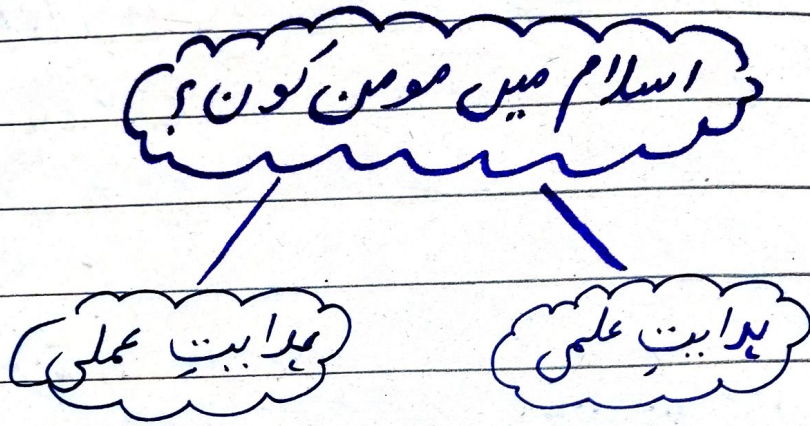 اسلام میں مومن کون؟
ہدایتِ علمی
ہدایتِ عملی